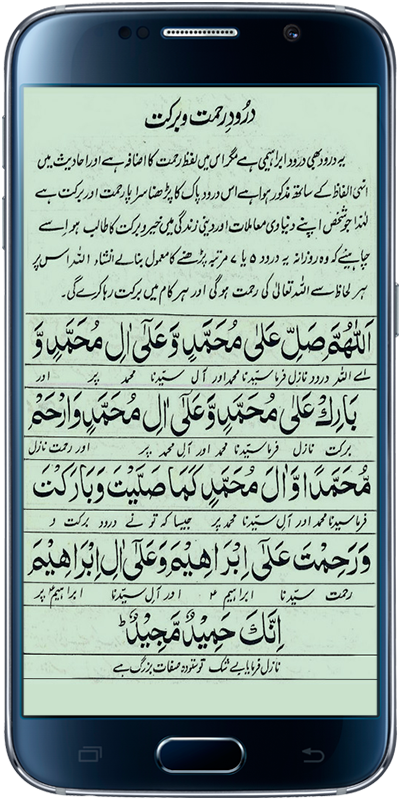 درُود رحمت و برکت
یہ درود بھی درود ابراہیمی ہے مگر اس میں لفظ رحمت کا اضافہ ہے اور احادیث میں
انہی الفاظ کے ساتھ مذکور ہوا ہے اس درود پاک کا پڑھنا سراپا رحمت اور برکت ہے
لہٰذا جو شخص اپنے دنیاوی معاملات اور دینی زندگی میں خیر و برکت کا طالب ہو اسے
چاہیئے کہ وہ روزانہ یہ درود ۵ یا ۷ مرتبہ پڑھنے کا معمول بنالے انشاء اللہ اس پر
ہر لحاظ سے اللہ تعالیٰ کی رحمت ہوگی اور ہر کام میں برکت رہا کرے گی۔
اَللّٰهُمَّ صَلِّ عَلٰى مُحَمَّدٍ وَّعَلٰٓى اٰلِ مُحَمَّدٍ وَّ
اے اللہ درود نازل فرما سیّدنا محمد اور آل سیّدنا محمد پر اور
بَارِكْ عَلٰى مُحَمَّدٍ وَّعَلٰٓى اٰلِ مُحَمَّدٍ وَّارْحَمْ
برکت نازل فرما سیّدنا محمد اور آل محمد پر اور رحمت نازل
مُحَمَّدًا وَّاٰلَ مُحَمَّدٍ كَمَا صَلَّيْتَ وَبَارَكْتَ
فرما سیّدنا محمد اور آل سیّدنا محمد پر جیسا کہ تو نے درود برکت و
وَرَحِمْتَ عَلٰٓى اِبْرَاهِيْمَ وَعَلٰٓى اٰلِ اِبْرَاهِيْمَ
رحمت سیّدنا ابراہیم ؑ اور آل سیّدنا ابراہیم ؑ پر
اِنَّكَ حَمِيْدٌ مَّجِيْدٌ ؕ
نازل فرمایا بے شک تو ستودہ صفات بزرگ ہے